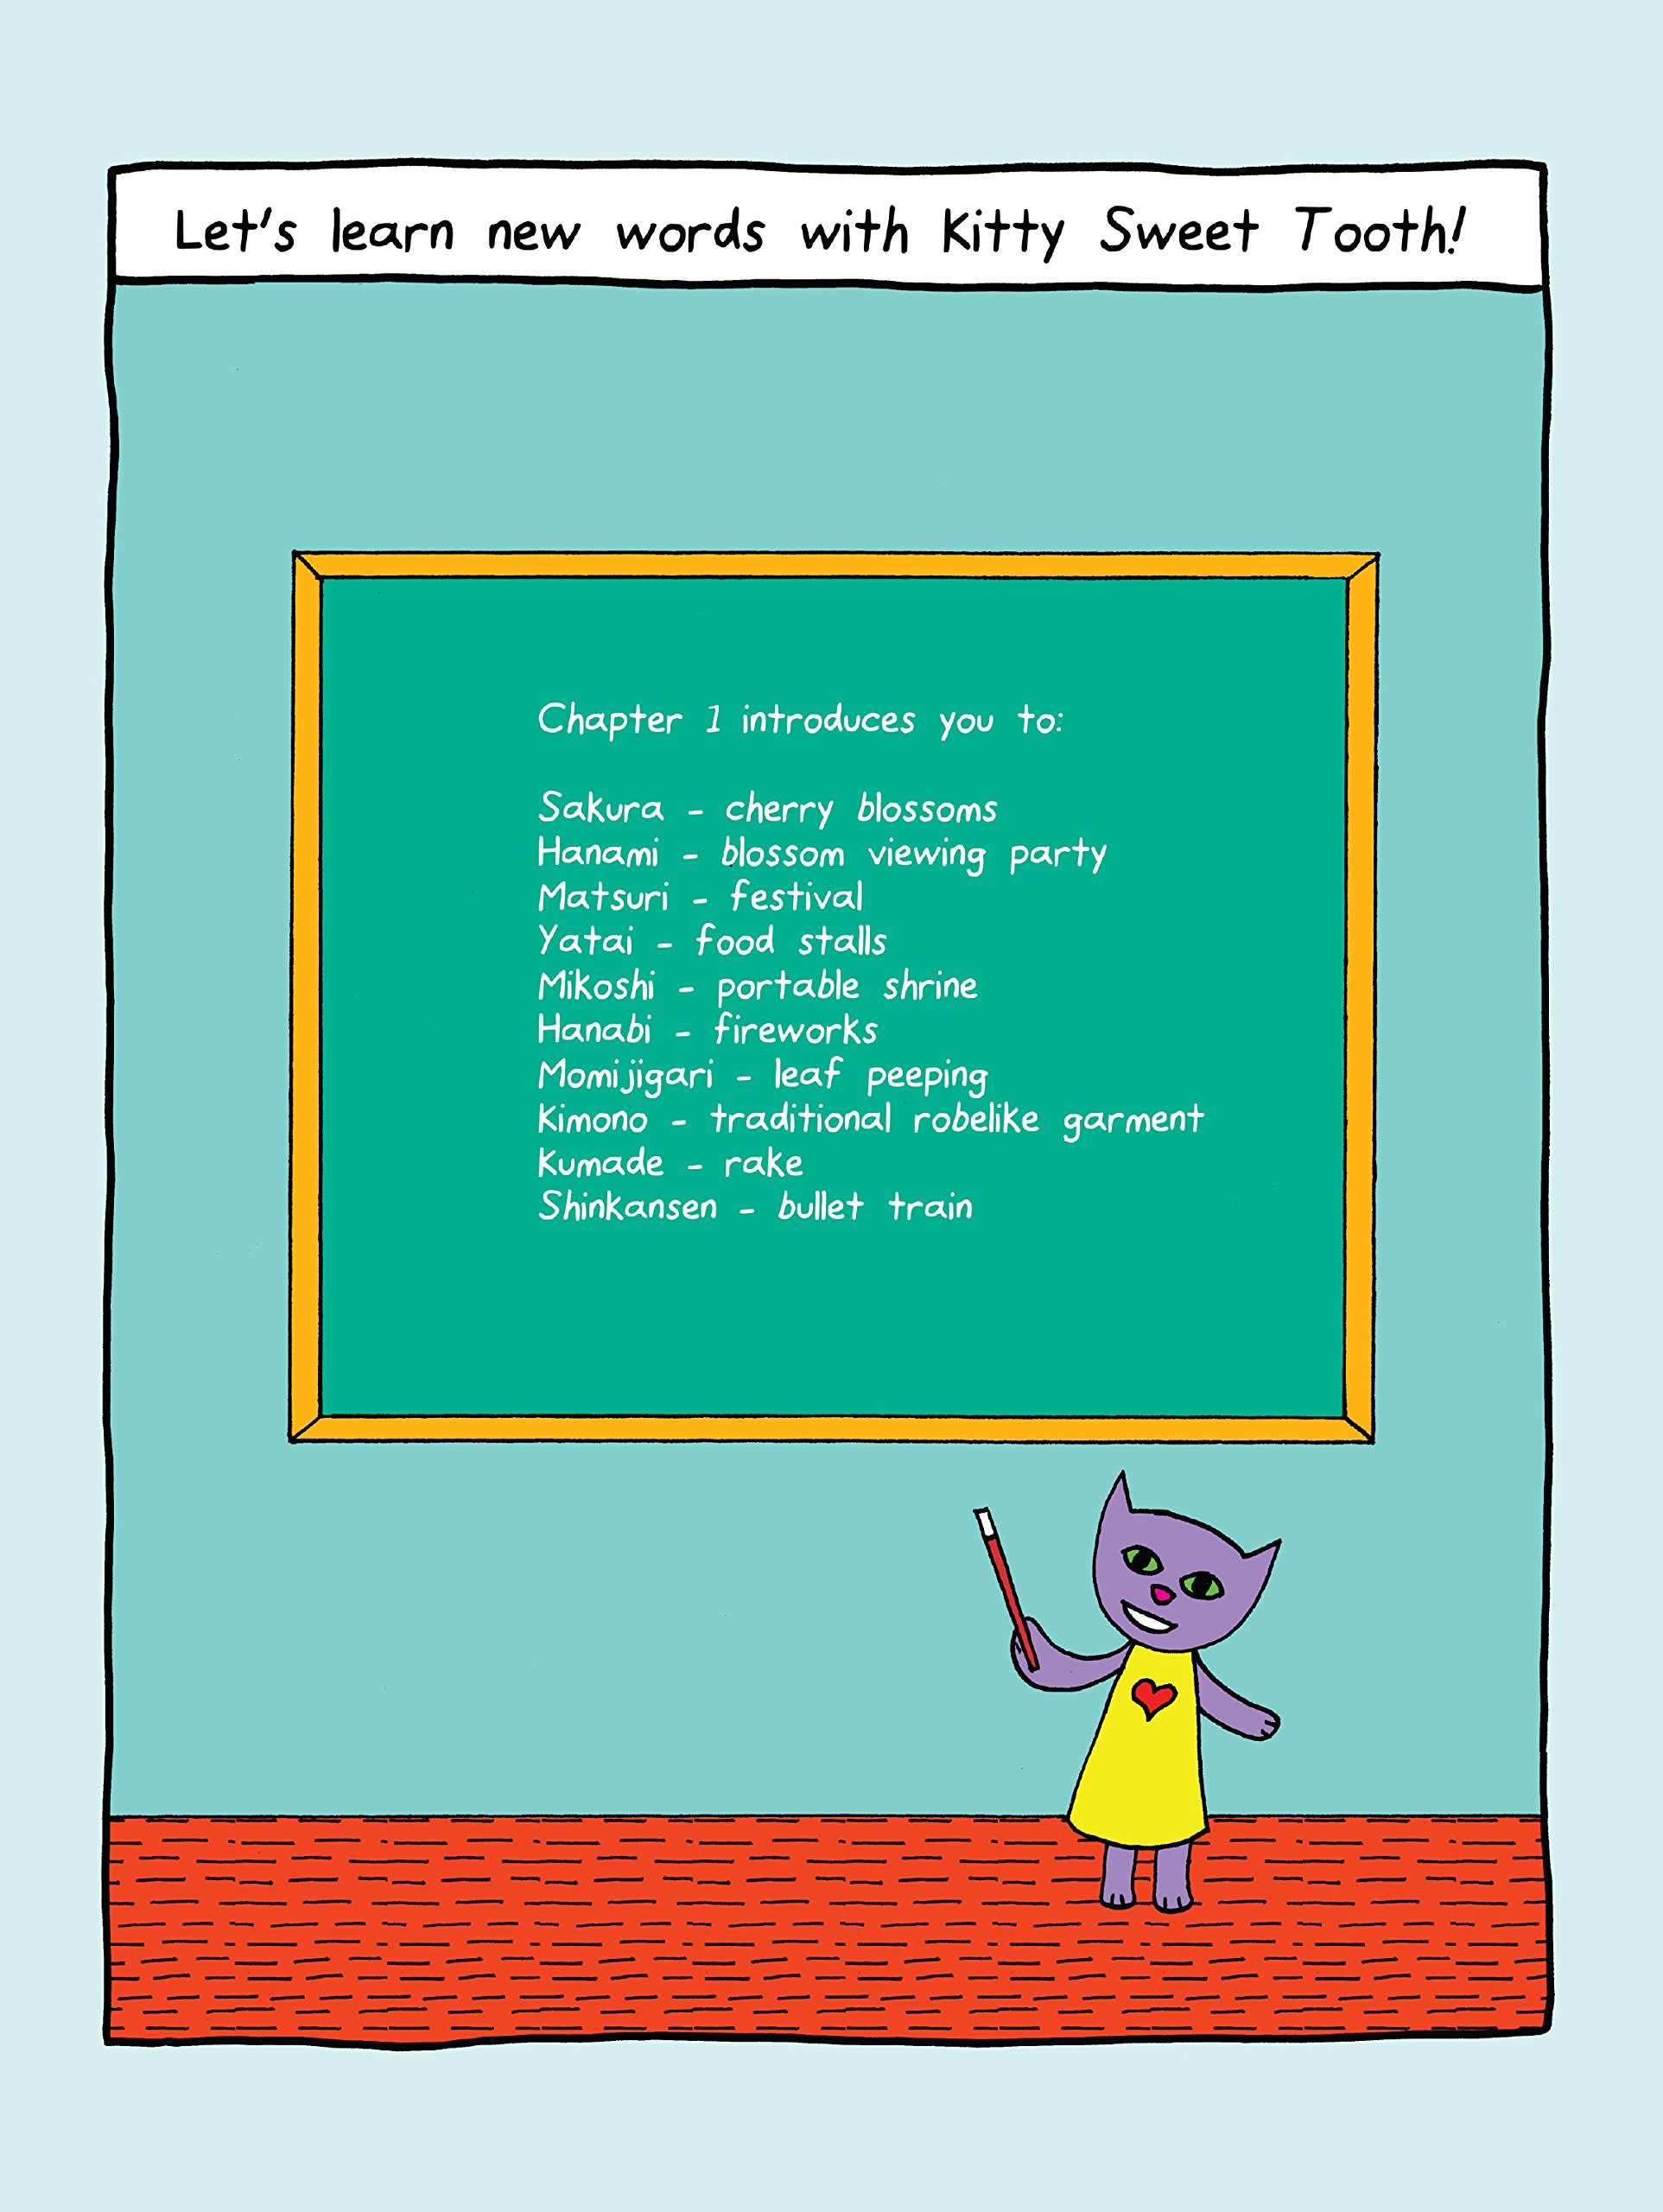 Let's learn new words with Kitty Sweet Tooth!
Chapter 1 introduces you to:
Sakura - cherry blossoms
Hanami - blossom viewing party
Matsuri - festival
Yatai - food stalls
Mikoshi - portable shrine
Hanabi - fireworks
Momijigari - leaf peeping
Kimono - traditional robelike garment
Kumade - rake
Shinkansen - bullet train